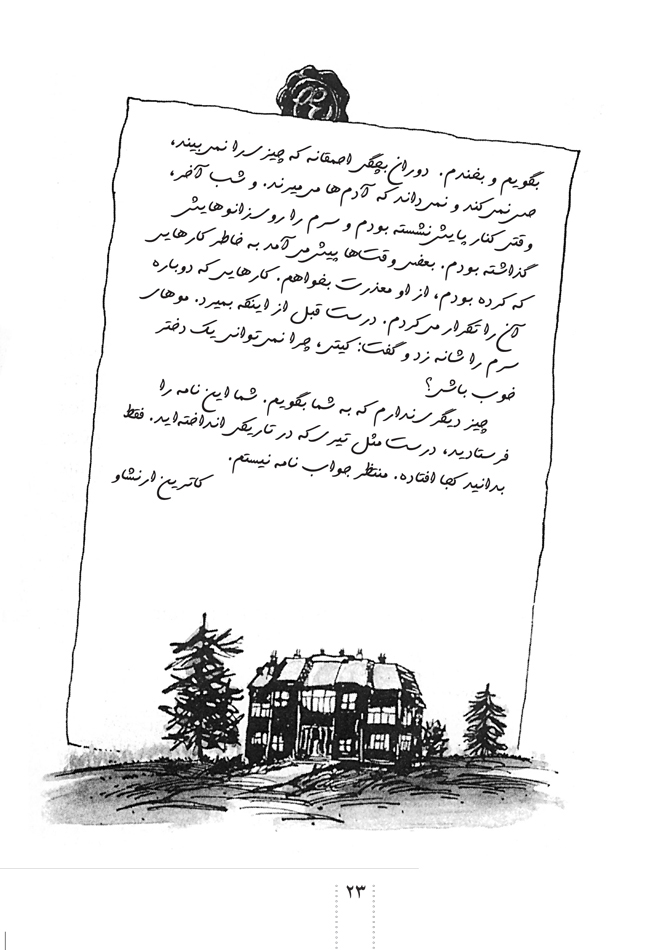 بگویم و بخندم. دوران بچگی احمقانه که چیزی را نمی‌بیند،
حس نمی‌کند و نمی‌داند که آدم‌ها می‌میرند. و شب آخر،
وقتی کنار پایش نشسته بودم و سرم را روی زانوهایش
گذاشته بودم. بعضی وقت‌ها پیش می‌آمد به خاطر کارهایی
که کرده بودم، از او معذرت بخواهم. کارهایی که دوباره
آن را تکرار می‌کردم. درست قبل از اینکه بمیرد. موهای
سرم را شانه زد و گفت: کیتی، چرا نمی‌توانی یک دختر
خوب باشی؟
چیز دیگری ندارم که به شما بگویم. شما این نامه را
فرستادید، درست مثل تیری که در تاریکی انداخته‌اید. فقط
بدانید کجا افتاده. منتظر جواب نامه نیستم.
کاترین ارنشاو
۲۳